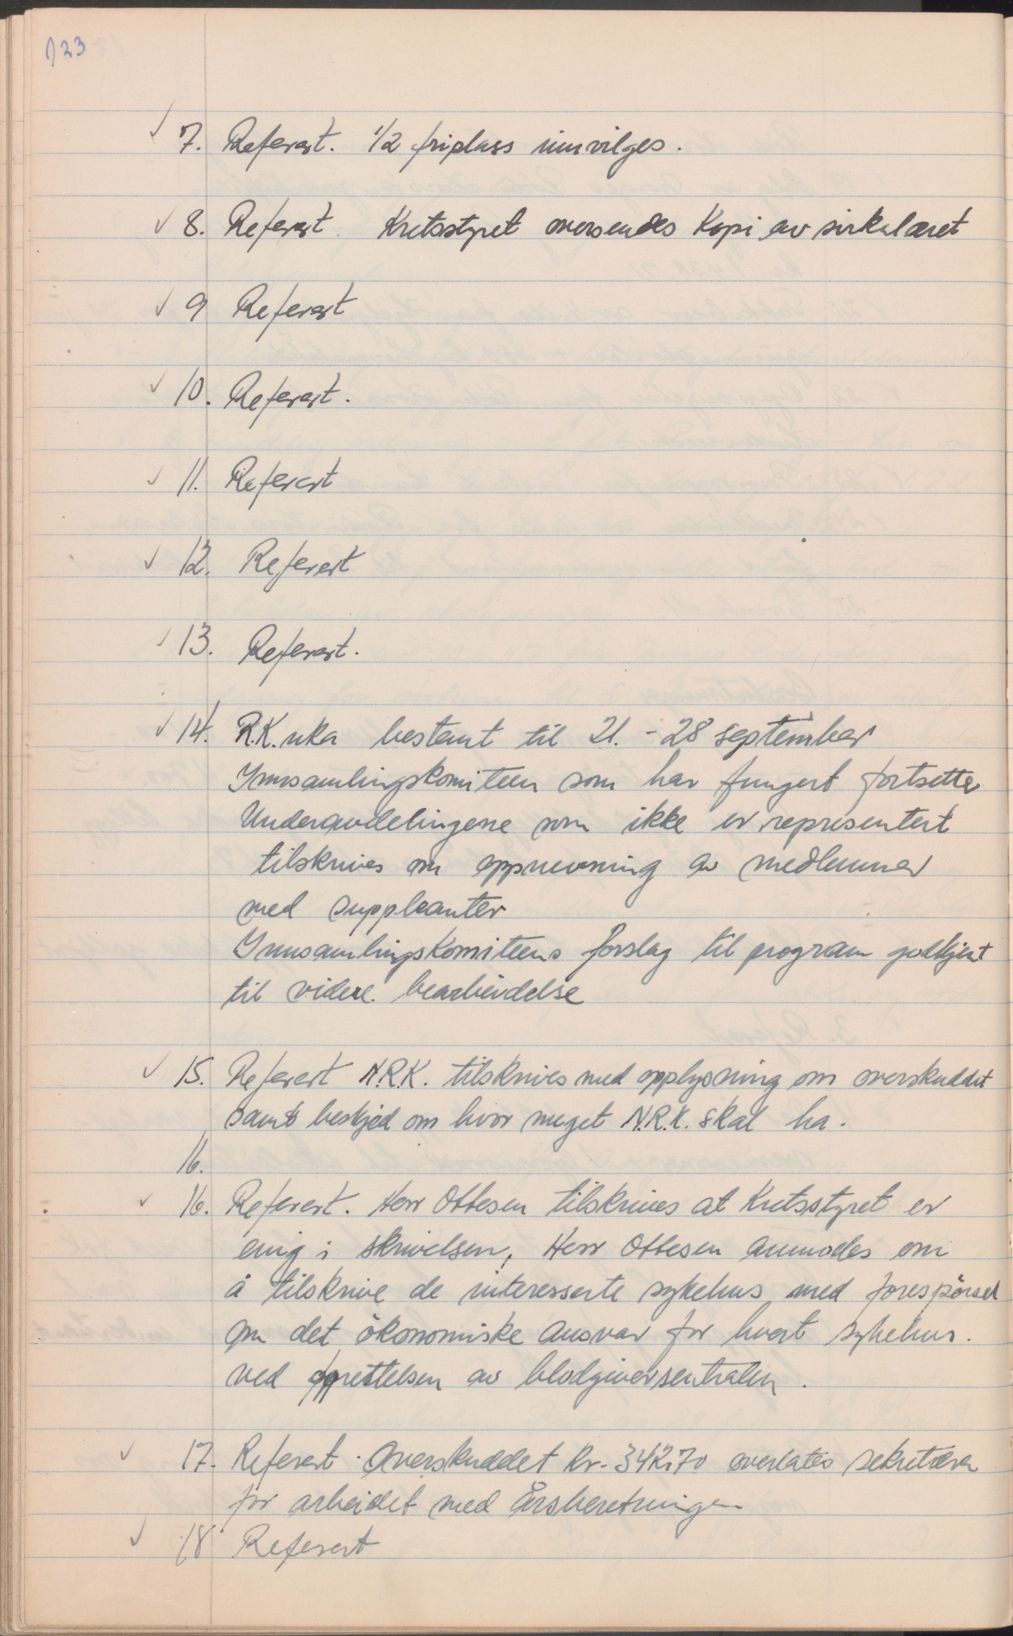 123
✓ 7. Referert. 1/2 friplass innvilges.
✓ 8. Referert. Kretsstyret oversendes Kopi av sirkulæret
✓ 9 Referert
✓ 10. Referert.
✓ 11. Referert
✓ 12. Referert
✓ 13. Referert.
✓ 14. R.K. uka bestemt til 21. - 28 september
Innsamlingskomiteen som har fungert fortsetter
Underavdelingene som ikke er representert
tilskrives om oppnevning av medlemmer
med suppleanter
Innsamlingskomiteens forslag til program godkjent
til videre bearbeidelse
✓ 15. Referert N.R.K. tilskrives med opplysning om overskuddet
samt beskjed om hvor meget N.R.K. skal ha.
16.
✓ 16. Referert. Herr Ottesen tilskrives at Kretsstyret er
enig i skrivelsen, Herr Ottesen anmodes om
å tilskrive de interesserte sykehus med forespörsel
om det ökonomiske ansvar for hvert sykehus.
ved opprettelsen av blodgiversentralen.
✓ 17. Referert. Overskuddet kr. 342.70 overlates sekretæren
for arbeidet med Årsberetningen
✓ 18 Referert